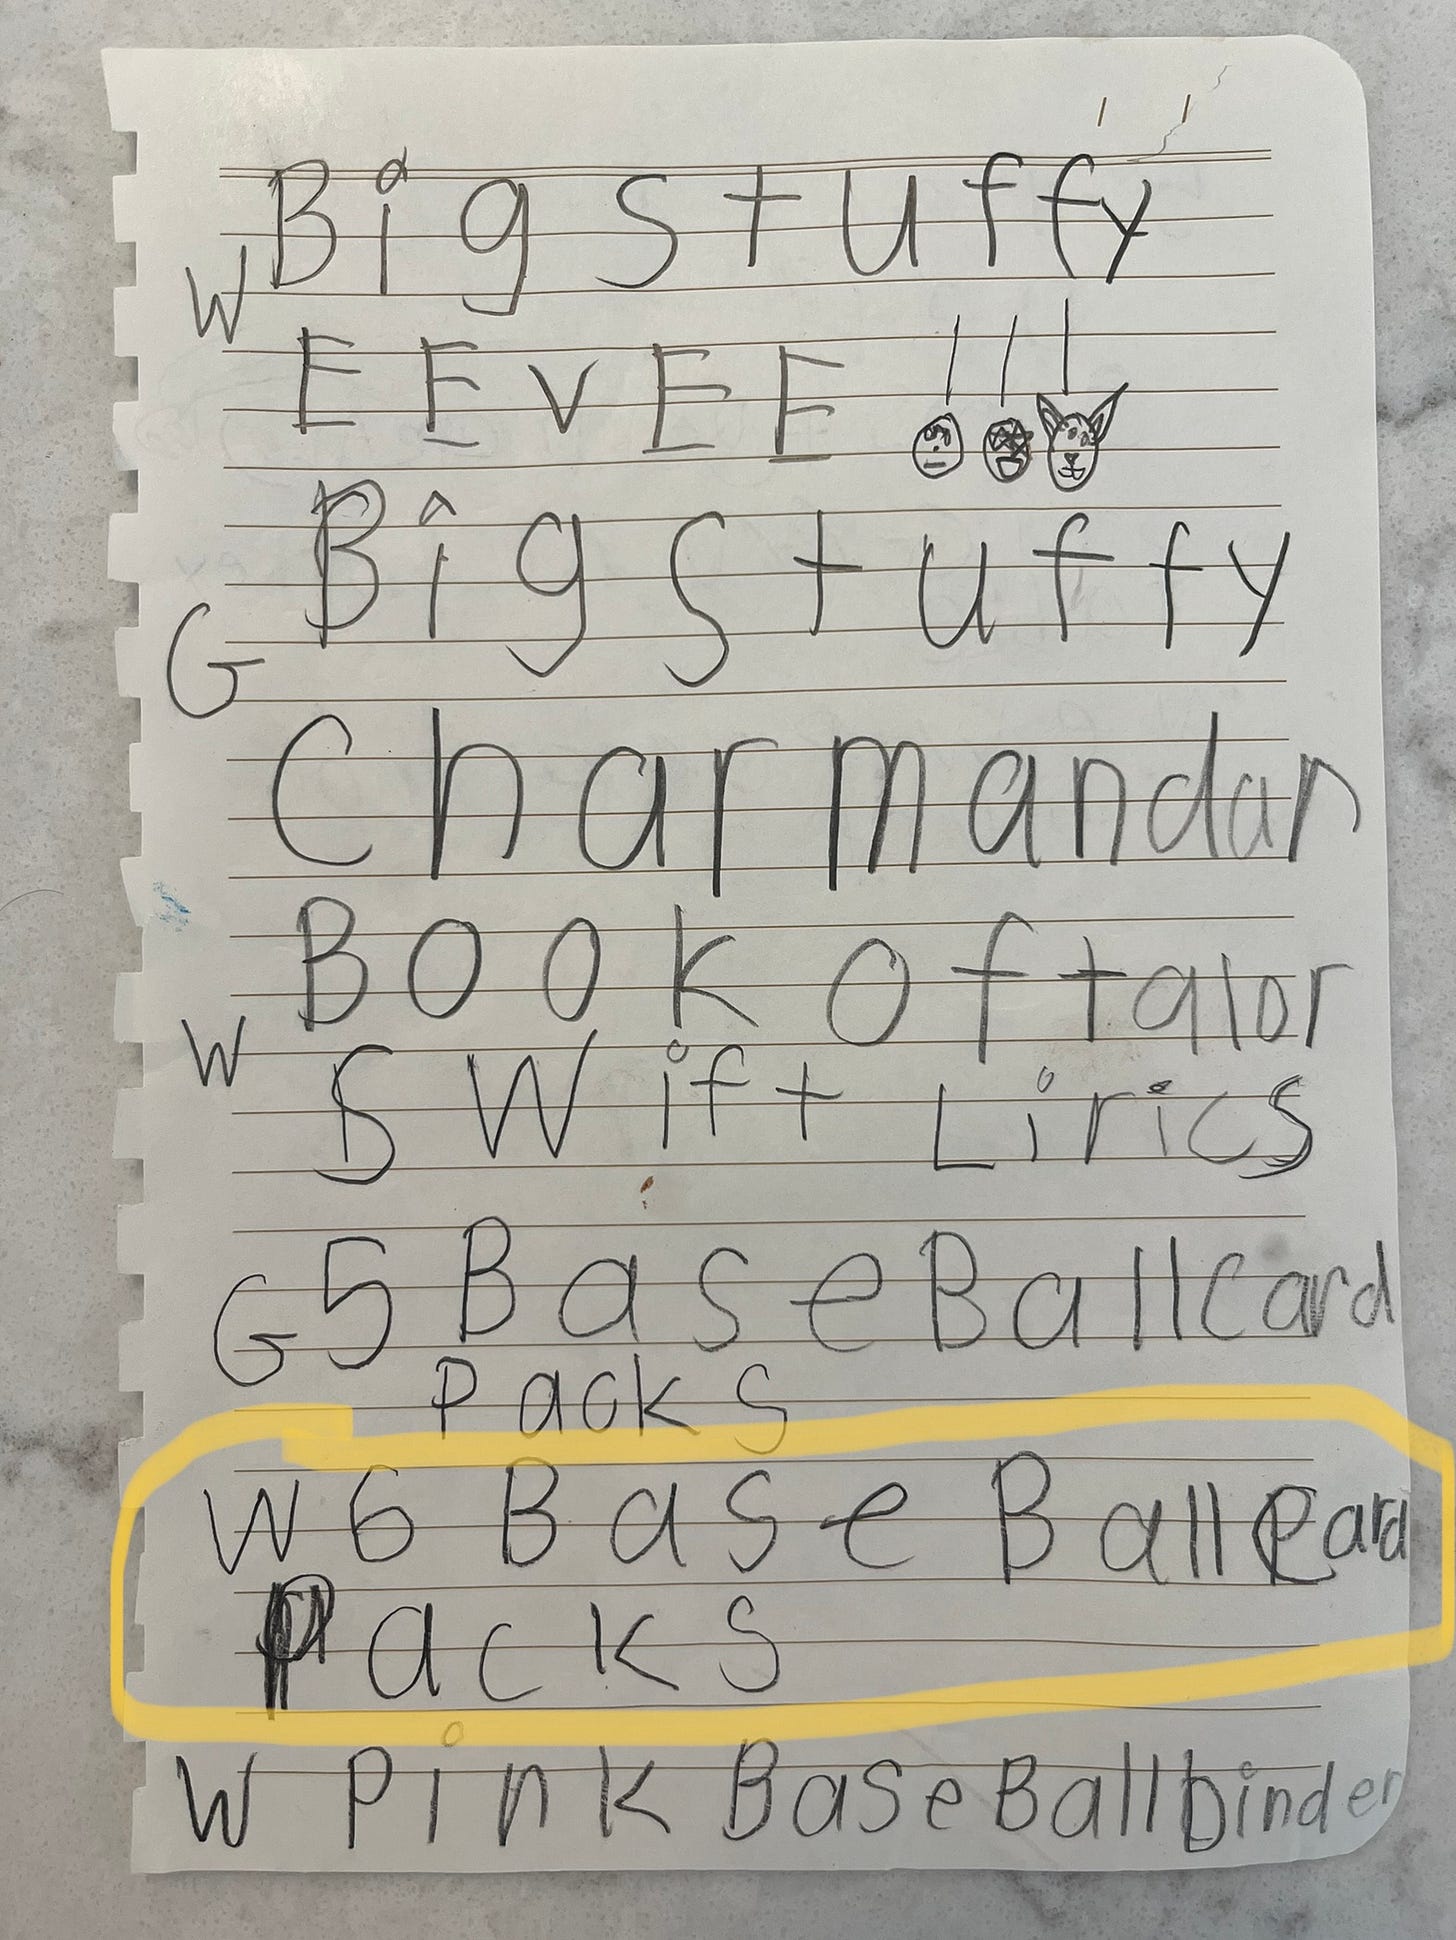 Big stuffy
W
EEVEE !!!
Big stuffy
G
Charmandar
Book of talor
W
SWift Lirics
G 5 BaseBallcard
Packs
W 6 BaseBallcard
Packs
W Pink BaseBallbinder